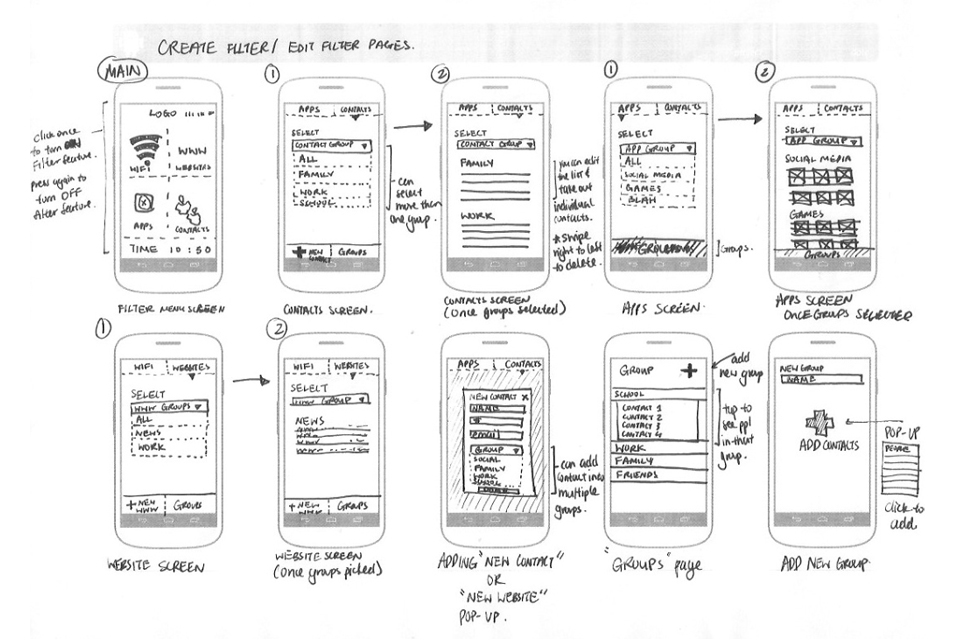 CREATE FILTER/ EDIT FILTER PAGES.
MAIN
click once
to turn ON
Filter feature.
press again to
turn OFF
filter feature.
LOGO
WIFI
WWW
WEBSITES
APPS
CONTACTS
TIME 10:50
FILTER MENU SCREEN
1
APPS CONTACTS
SELECT
CONTACT GROUP
ALL
FAMILY
WORK
SCHOOL
+ NEW CONTACT
GROUPS
- can
select
more then
one group.
CONTACTS SCREEN.
2
APPS CONTACTS
SELECT
CONTACT GROUP
FAMILY
WORK
you can edit
the list &
take out
individual
contacts.
* Swipe
right to left
to delete.
CONTACTS SCREEN
(Once groups selected)
1
APPS CONTACTS
SELECT
APP GROUP
ALL
SOCIAL MEDIA
GAMES
BLAH
Groups.
APPS SCREEN.
2
APPS CONTACTS
SELECT
APP GROUP
SOCIAL MEDIA
GAMES
GROUPS
APPS SCREEN
ONCE GROUPS SELECTED
1
WIFI WEBSITES
SELECT
WWW GROUPS
ALL
NEWS
WORK
+ NEW
WWW
GROUPS
WEBSITE SCREEN
2
WIFI WEBSITES
SELECT
WWW GROUP
NEWS
+ NEW
WWW
GROUPS
WEBSITE SCREEN
(Once groups picked)
APPS CONTACTS
NEW CONTACT X
NAME
EMAIL
GROUP
SOCIAL
FAMILY
WORK
SCHOOL
- can add
contact into
multiple
groups.
ADDING "NEW CONTACT"
OR
"NEW WEBSITE"
POP-UP.
GROUP +
add
new group
SCHOOL
CONTACT 1
CONTACT 2
CONTACT 3
CONTACT 4
WORK
FAMILY
FRIENDS
tap to
see ppl
in that
group.
"GROUPS" page
NEW GROUP
NAME
ADD CONTACTS
POP-UP
PEOPLE
Click to
add
ADD NEW GROUP